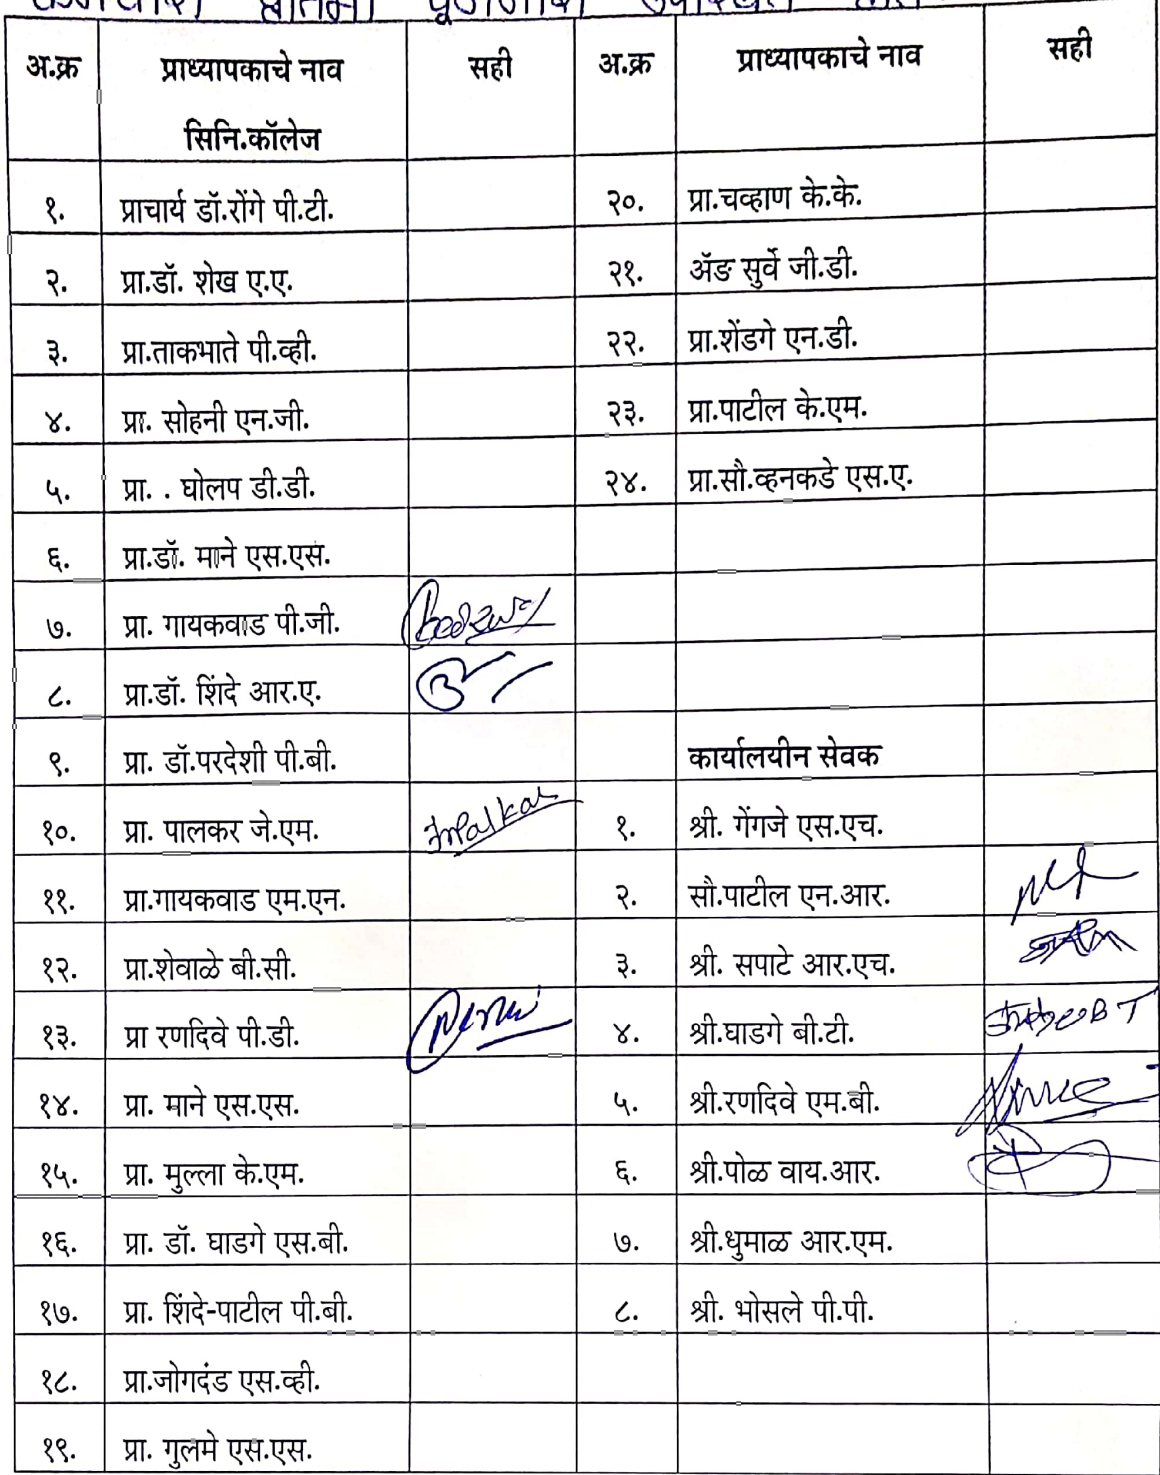 अ.क्र प्राध्यापकाचे नाव सही अ.क्र प्राध्यापकाचे नाव सही
सिनि.कॉलेज
१. प्राचार्य डॉ.रोंगे पी.टी. २०. प्रा.चव्हाण के.के.
२. प्रा.डॉ. शेख ए.ए. २१. ॲड सुर्वे जी.डी.
३. प्रा.ताकभाते पी.व्ही. २२. प्रा.शेंडगे एन.डी.
४. प्रा. सोहनी एन.जी. २३. प्रा.पाटील के.एम.
५. प्रा. . घोलप डी.डी. २४. प्रा.सौ.व्हनकडे एस.ए.
६. प्रा.डॉ. माने एस.एस.
७. प्रा. गायकवाड पी.जी.
८. प्रा.डॉ. शिंदे आर.ए.
९. प्रा. डॉ.परदेशी पी.बी. कार्यालयीन सेवक
१०. प्रा. पालकर जे.एम. Jmpalkar १. श्री. गेंगजे एस.एच.
११. प्रा.गायकवाड एम.एन. २. सौ.पाटील एन.आर.
१२. प्रा.शेवाळे बी.सी. ३. श्री. सपाटे आर.एच.
१३. प्रा रणदिवे पी.डी. ४. श्री.घाडगे बी.टी.
१४. प्रा. माने एस.एस. ५. श्री.रणदिवे एम.बी.
१५. प्रा. मुल्ला के.एम. ६. श्री.पोळ वाय.आर.
१६. प्रा. डॉ. घाडगे एस.बी. ७. श्री.धुमाळ आर.एम.
१७. प्रा. शिंदे-पाटील पी.बी. ८. श्री. भोसले पी.पी.
१८. प्रा.जोगदंड एस.व्ही.
१९. प्रा. गुलमे एस.एस.